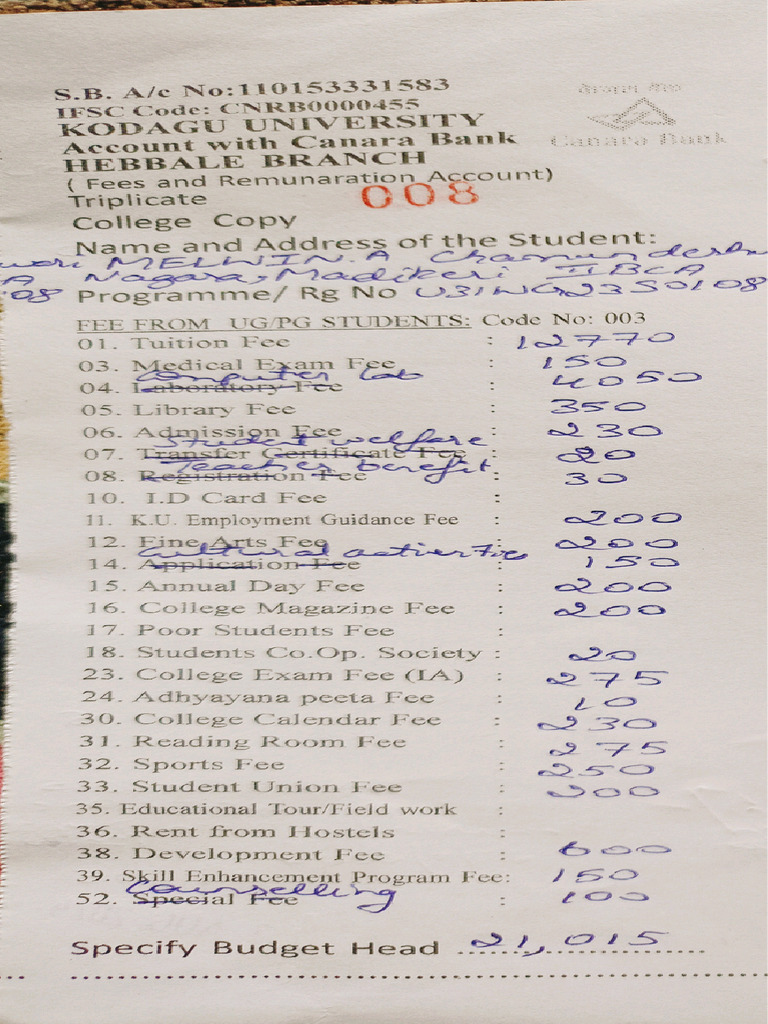 S.B. A/c No:110153331583
IFSC Code: CNRB0000455
KODAGU UNIVERSITY
Account with Canara Bank
Canara Bank
HEBBALE BRANCH
( Fees and Remunaration Account)
Triplicate 008
College Copy
Name and Address of the Student:
MELWIN.A
Nagara, Madikeri II BCA
Programme/ Rg No U31NG23S0108
FEE FROM UG/PG STUDENTS: Code No: 003
01. Tuition Fee : 12770
03. Medical Exam Fee : 150
Computer lab
04. Laboratory Fee : 4050
05. Library Fee : 350
06. Admission Fee : 230
Student welfare
07. Transfer Certificate Fee : 20
Teacher benefit
08. Registration Fee : 30
10. I.D Card Fee :
11. K.U. Employment Guidance Fee : 200
12. Fine Arts Fee : 200
Cultural
14. Application Fee : 150
15. Annual Day Fee : 200
16. College Magazine Fee : 200
17. Poor Students Fee :
18. Students Co.Op. Society : 20
23. College Exam Fee (IA) : 275
24. Adhyayana peeta Fee : 10
30. College Calendar Fee : 230
31. Reading Room Fee : 275
32. Sports Fee : 250
33. Student Union Fee : 200
35. Educational Tour/Field work :
36. Rent from Hostels :
38. Development Fee : 600
39. Skill Enhancement Program Fee: 150
Counselling
52. Special Fee : 100
Specify Budget Head 21,015